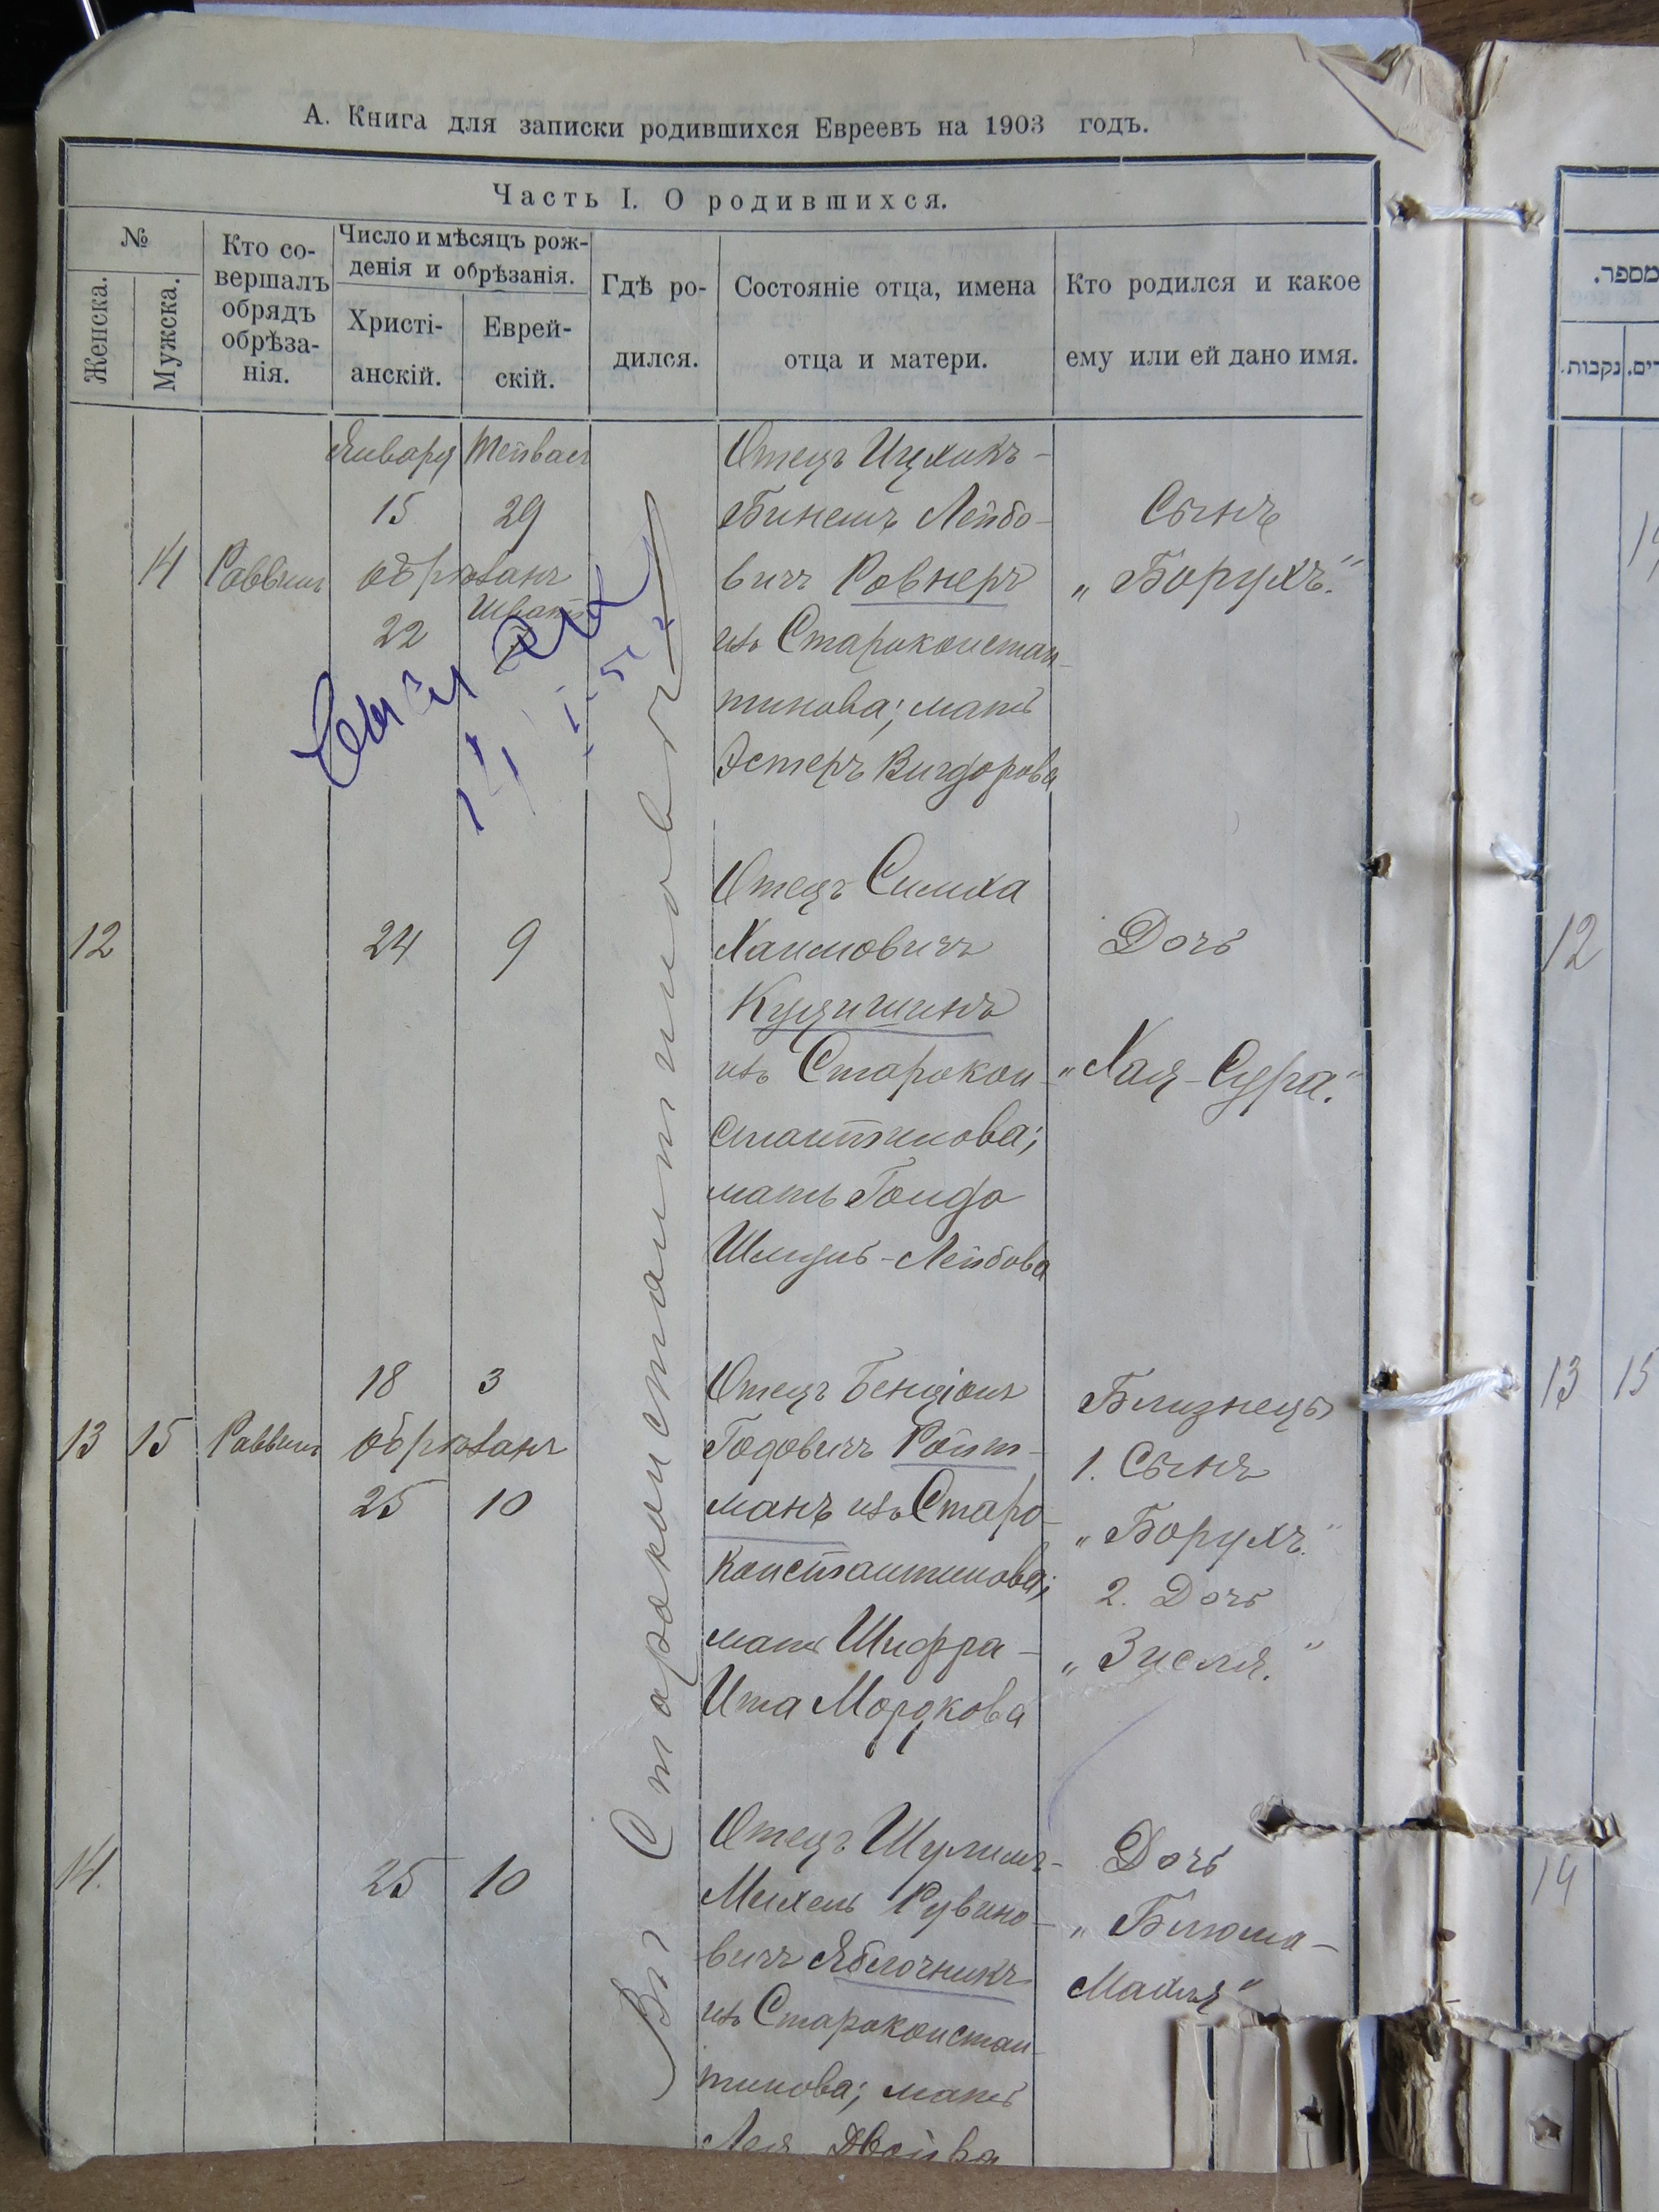 А. Книга для записки родившихся Евреевъ на 1903 годъ.
Часть I. О родившихся.
№
Женска.
Мужска.
Кто со-
вершалъ
обрядъ
обрѣза-
нія.
Число и мѣсяцъ рож-
денія и обрѣзанія.
Христі-
анскій.
Еврей-
скій.
Гдѣ ро-
дился.
Состояніе отца, имена
отца и матери.
Кто родился и какое
ему или ей дано имя.
Въ Староконстантиновѣ
14 Раввинъ
Января
15 29
обрѣзанъ
Шватъ
22
Отецъ Ицхикъ-
Бинешъ Лейбо-
вичъ Ровнеръ
изъ Староконстан-
тинова; мать
Эстеръ Вигдорова
Сынъ
„Борухъ."
12 24 9
Отецъ Симха
Хаимовичъ
Куцишинъ
изъ Старокон-
стантинова;
мать Гольда
Лейбова
Дочь
„Хая-Сура."
13 15 Раввинъ
18 3
обрѣзанъ
25 10
Отецъ Бенціонъ
Годовичъ Ройт-
манъ изъ Старо-
константинова;
мать Шифра-
Ита Мордкова
Близнецы
1. Сынъ
„Борухъ."
2. Дочь
„Зисля."
14. 25 10
Отецъ Шулимъ-
Михель Рувино-
вичъ Яблочникъ
изъ Староконстан-
тинова; мать
Лея Двойра
Дочь
„Блюма-
Махля"
מספר.
נקבות.
12
13 15
14